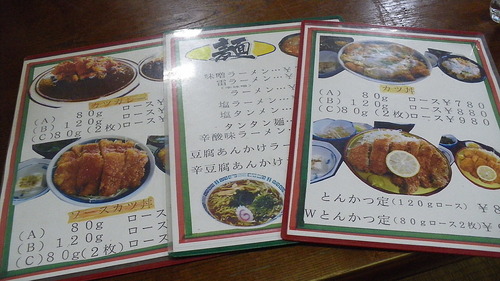 カツカレー
(A) 80g ロース¥
(B) 120g ロース
(C)80g(2枚)ロー
ソースカツ丼
(A) 80g ロース
(B) 120g ロース
(C)80g(2枚)ロース
麺
味噌ラーメン…¥
ラーメン…
塩ラーメン…
塩タンメン…
タンタン麺…
辛酸味ラーメン
豆腐あんかけラー
辛豆腐あんかけ
カツ丼
(A) 80g ロース¥780
(B) 120g ロース¥880
(C)80g(2枚)ロース¥980
とんかつ定(120gロース) ¥8
Wとんかつ定(80gロース2枚)¥